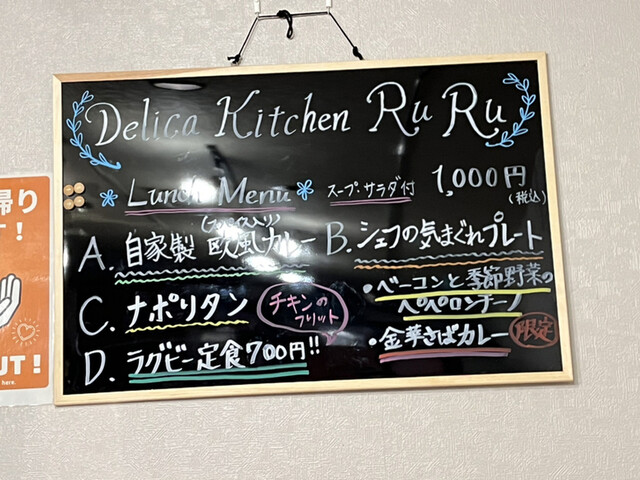 Delica Kitchen Ru Ru
Lunch Menu スープ.サラダ付 1,000円
(税込)
A. 自家製 欧風カレー
B. シェフの気まぐれプレート
・ベーコンと季節野菜の
ペペロンチーノ
C. ナポリタン
チキンの
フリット
・金華さばカレー 限定
D. ラグビー定食700円!!
帰り
!
OUT!
here.